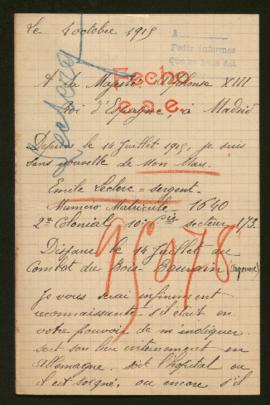 Le 2 octobre 1915
A
Pedir informes
Fecho
A Sa Majesté Alphonse XIII
Roi d'Espagne, à Madrid
e.a.e.
Depuis le 14 Juillet 1915, je suis
sans nouvelle de mon Mari
Emile Leclerc = sergent.
Numéro Matricule 1640
2e Colonial 10e Cie secteur 1/3.
95078
Disparu le 14 Juillet au
Combat du Bois
Je vous serai infiniment
reconnaissante, s'il était en
votre pouvoir de m'indiquer
soit son lieu internement en
Allemagne, soit l'hôpital ou
il est soigné, ou encore s'il